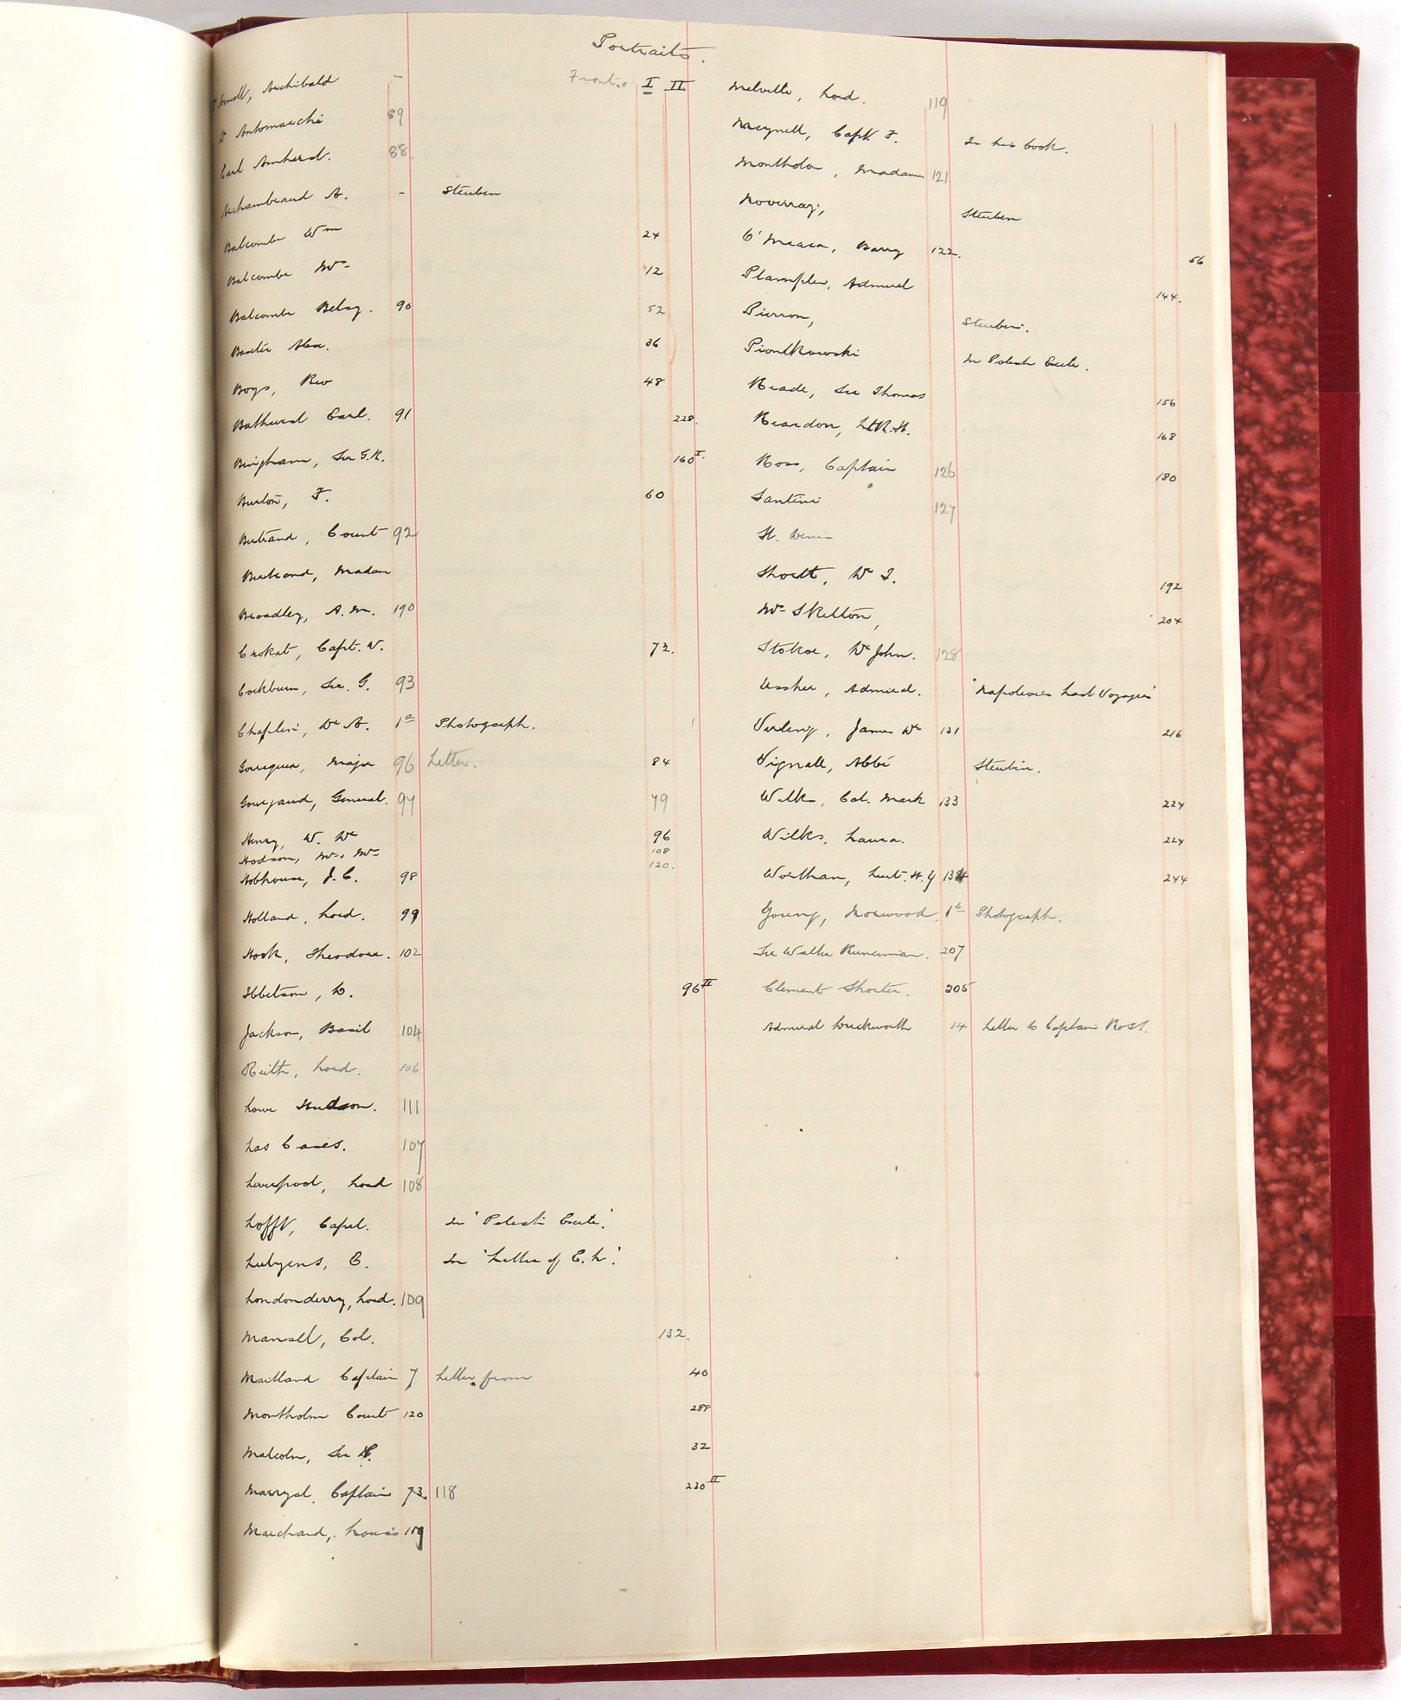 Portraits.
Front. I II
Arnott, Archibald -
Dr Antommarchi 89
Earl Amherst. 88.
Archambeaud A. - Steuben
Balcombe Wm 24
Balcombe Mrs 12
Balcombe Betsy. 90 52
Baxter Alex. 36
Boys, Rev 48
Bathurst Earl. 91 228.
Bingham, Sir G.R. 160 I.
Burton, F. 60
Bertrand, Count 92
Bertrand, Madam
Broadley, A.M. 190
Crokat, Capt. W. 72.
Cockburn, Sir. G. 93
Chaplin, Dr A. 1a Photograph.
Gorrequer, Major 96 Letter. 84
Gourgaud, General. 97 79
Henry, W. Dr 96
Hodson, Mr & Mrs 108 120.
Hobhouse, J.C. 98
Holland, Lord. 99
Hook, Theodore. 102
Ibbetson, D. 96 II
Jackson, Basil 104
Keith, Lord. 106
Lowe Hudson. 111
Las Cases. 107
Liverpool, Lord 108
Lofft, Capel. In 'Polish Exile'.
Lutyens, E. In 'Letters of E.L.'
Londonderry, Lord. 109
Mansel, Col. 132.
Maitland Captain 7 Letter from 40
Montholon Count 120 288
Malcolm, Sir P. 32
Marryat, Captain 73 118 230 II
Marchand, Louis 119
Melville, Lord. 119
Meynell, Capt. F. In his book.
Montholon, Madam 121
Noverraz, Steuben
O'Meara, Barry 122. 56
Plampin, Admiral 144.
Pierron, Steuben.
Piontkowski In Polish Exile.
Reade, Sir Thomas 156
Reardon, Lt R.H. 168
Ross, Captain 126 180
Santini 127
St. Denis
Shortt, Dr T. 192
Mrs Skelton, 204
Stokoe, Dr John. 128
Ussher, Admiral. 'Napoleon's Last Voyages'
Verling, James Dr 131 216
Vignali, Abbé Steuben.
Wilks, Col. Mark 133 224
Wilks, Laura. 224
Wortham, Lieut. H.Y 134 244
Young, Norwood. 1b Photograph.
Sir Walter Runciman. 207
Clement Shorter. 205
Admiral Duckworth 14 Letter to Captain Ross.